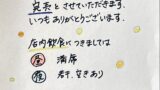 完売とさせていただきます。
いつもありがとうございます。
店内飲食につきましては
昼 満席
夜 若干、空きあり